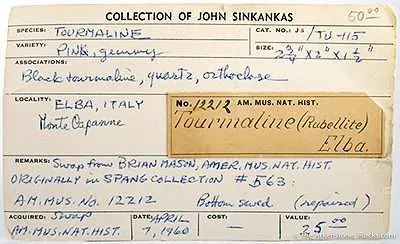 COLLECTION OF JOHN SINKANKAS
50.00
SPECIES: TOURMALINE CAT. NO.: JS TU-115
VARIETY: Pink, gemmy SIZE: 2 3/4" x 2" x 1 1/2"
ASSOCIATIONS:
Black tourmaline, quartz, orthoclase
LOCALITY: ELBA, ITALY
Monte Capanne
No. 12212 AM. MUS. NAT. HIST.
Tourmaline (Rubellite)
Elba.
REMARKS: Swap from BRIAN MASON, AMER. MUS. NAT. HIST.
ORIGINALLY in SPANG COLLECTION #563;
A.M. MUS. No. 12212 Bottom sawed (repaired)
ACQUIRED: Swap DATE: APRIL COST: — VALUE:
A.M. MUS. NAT. HIST. 7, 1960 25.00